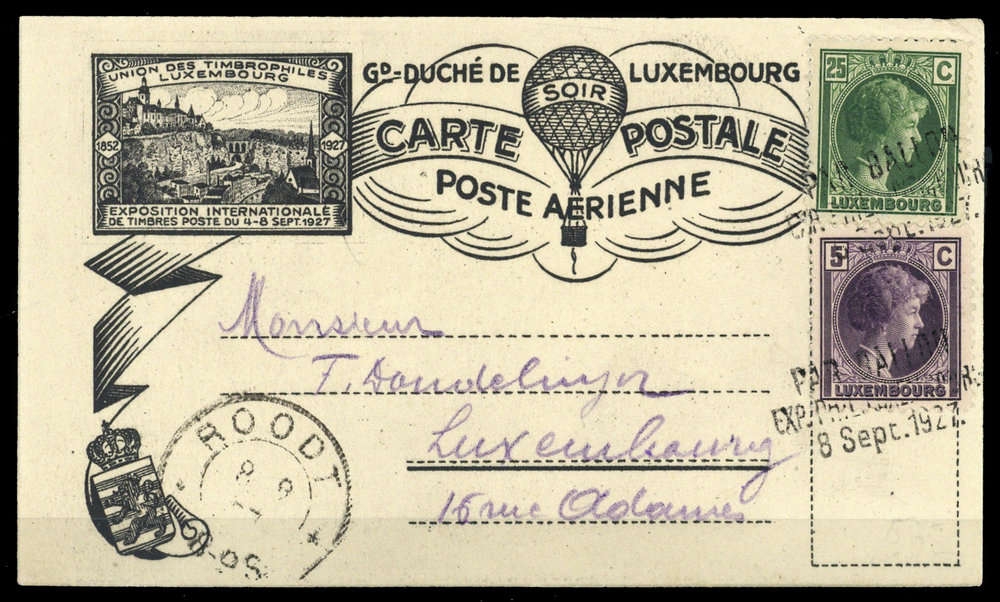 UNION DES TIMBROPHILES
LUXEMBOURG
1852 1927
EXPOSITION INTERNATIONALE
DE TIMBRES POSTE DU 4-8 SEPT. 1927
GD-DUCHÉ DE LUXEMBOURG
SOIR
CARTE POSTALE
POSTE AÉRIENNE
25 C
LUXEMBOURG
PAR BALLON
SEPT. 1927.
5 C
LUXEMBOURG
PAR BALLON
8 Sept. 1927.
Monsieur
T. Dondelinger
Luxembourg
16 rue Adames
ROODT
8 9